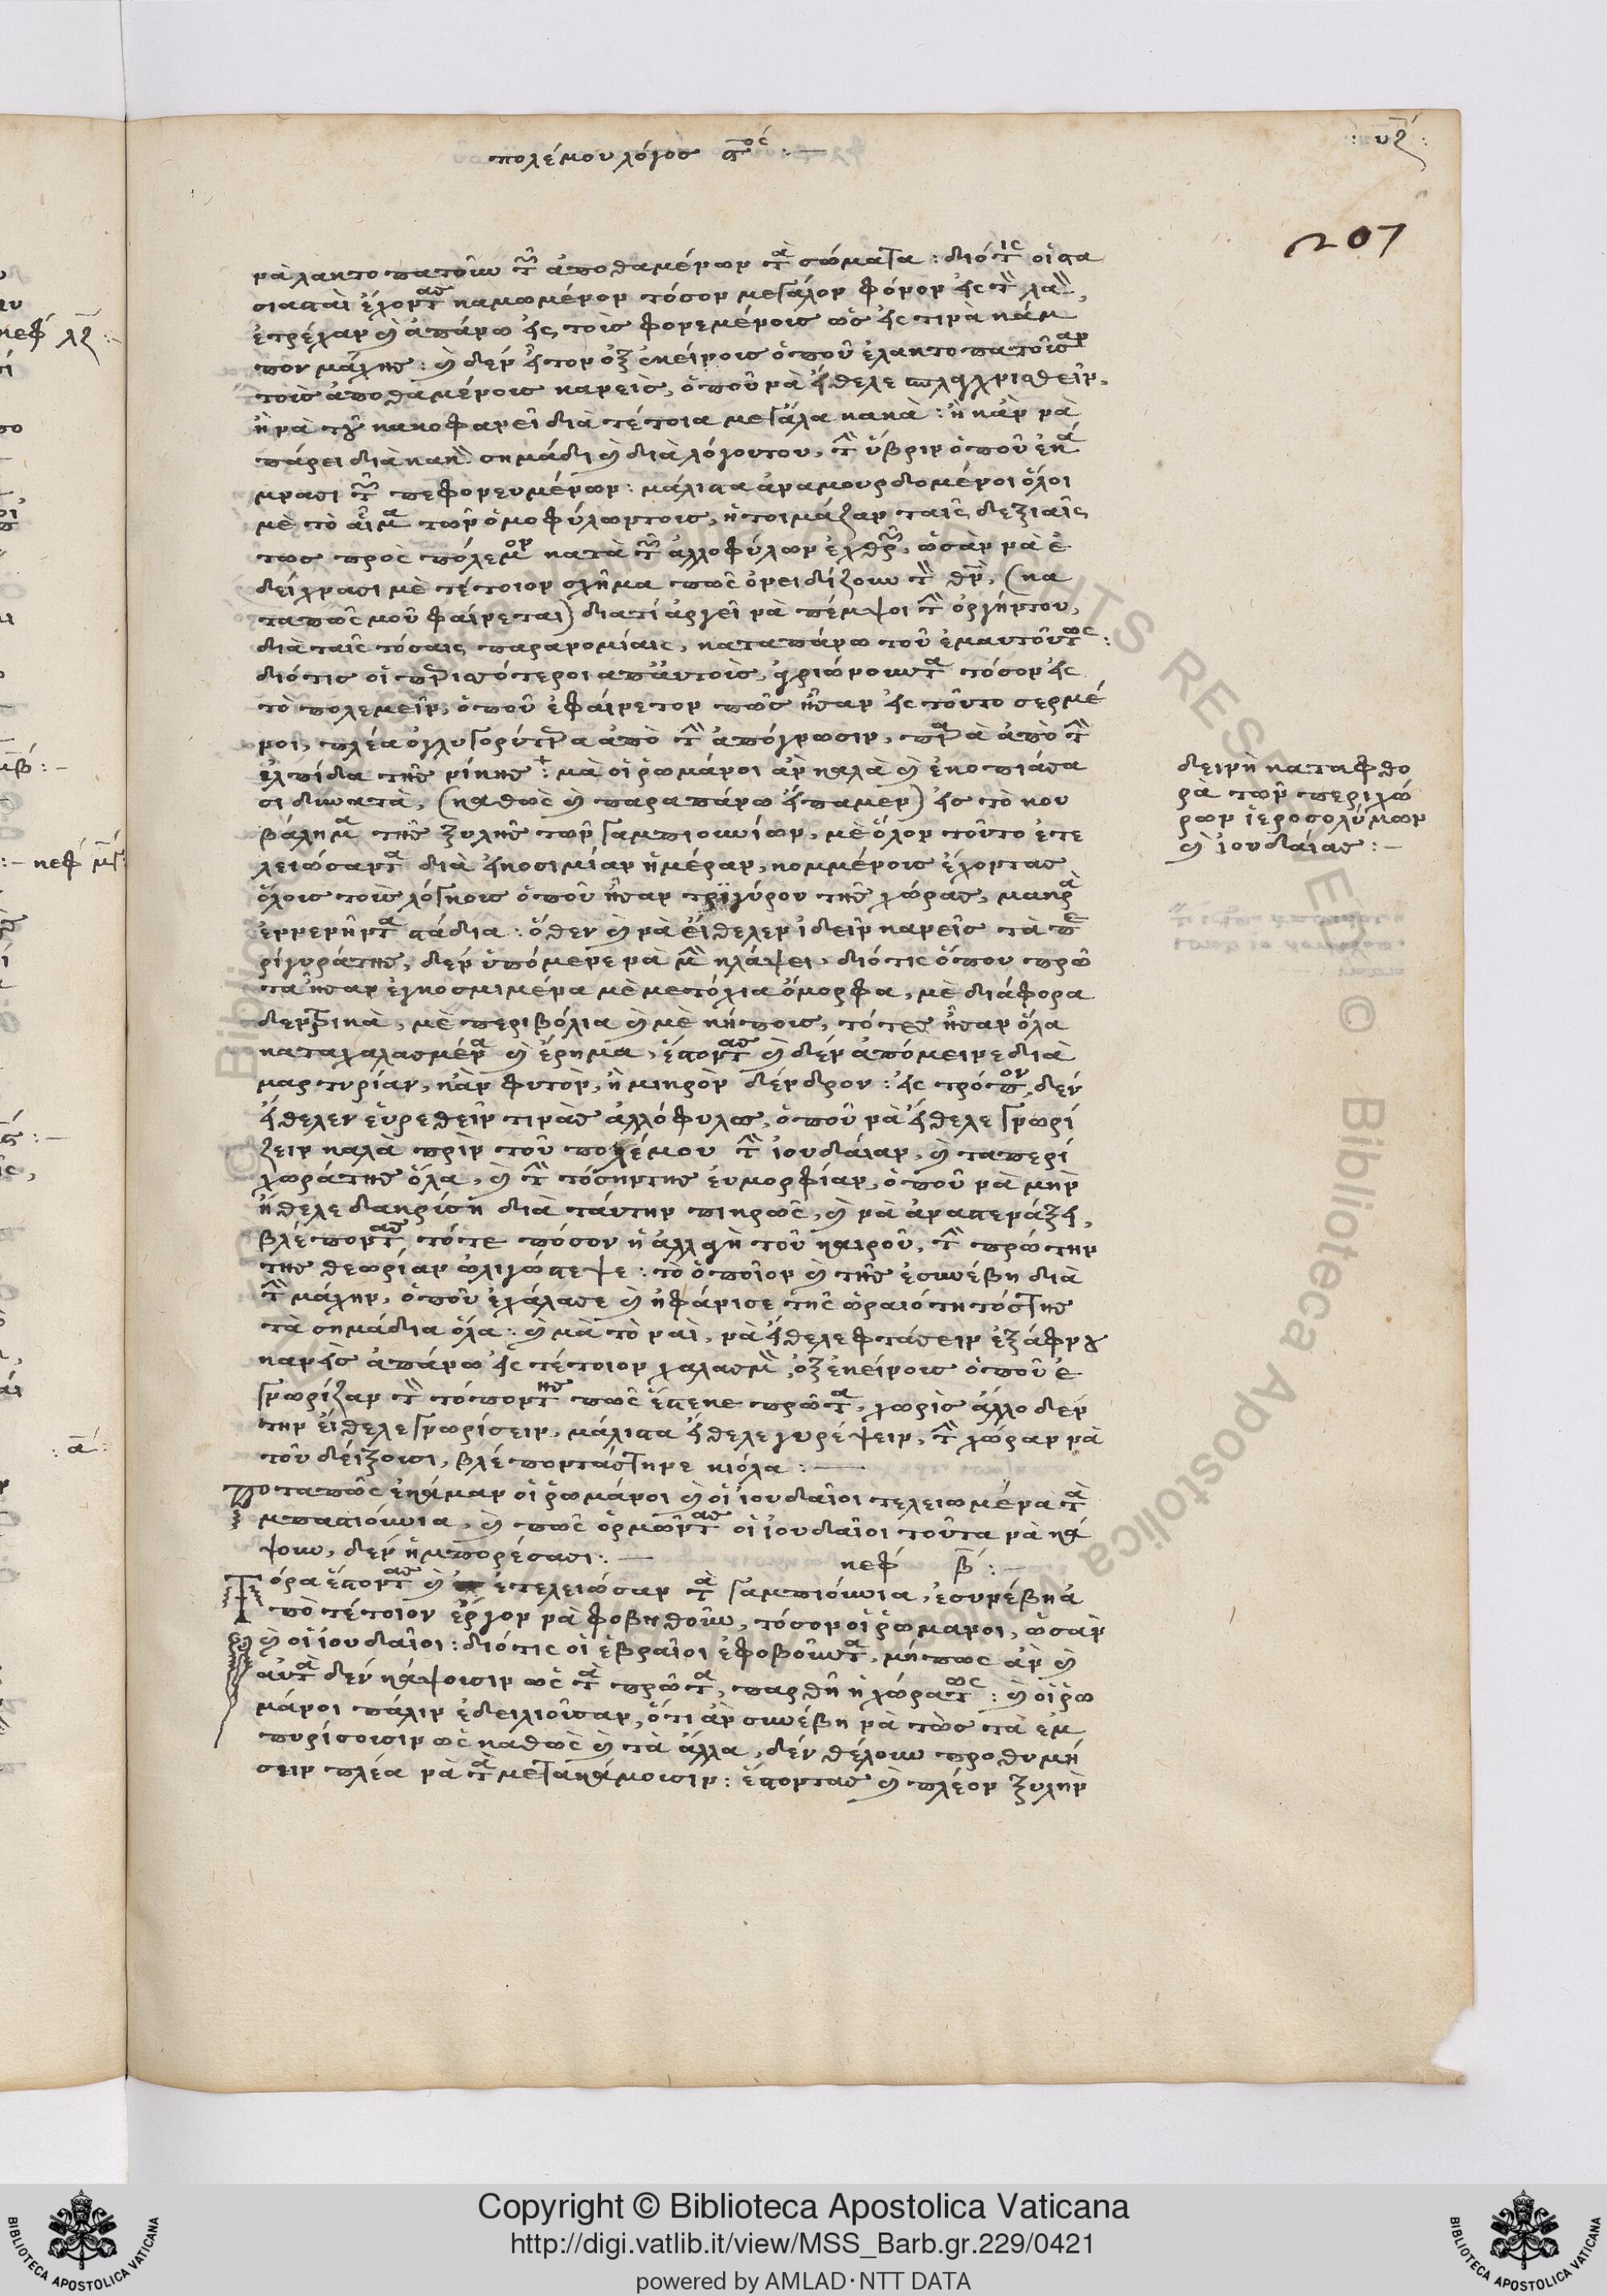 πολέμου λόγος ϛος :—
υζ
207
νὰ λακτοπατοῦν τῶν ἀποθαμένων τὰ σώματα : διότις οἱ στα
σιασταὶ ἔχοντας καμωμένον τόσον μεγάλον φόνον εἰς τὸν λαὸν,
ἐτρέχαν καὶ ἀπάνω εἰς τοὺς φονεμένους ὡς εἰς τινὰ κάμ
πον μάχης : καὶ δὲν ἦτον ὀξ ἐκείνους ὁποῦ ἐλακτοπατοῦσαν
τοὺς ἀποθαμένους κανεὶς, ὁποῦ νὰ ἤθελε
ἢ νὰ τοῦ κακοφανεῖ διὰ τέτοια μεγάλα κακὰ : ἢ κἂν νὰ
πάρει διὰ κακὸν σημάδι καὶ διὰ λόγουτου, τὴν ὕβριν ὁποῦ ἐκά
μνασι τῶν πεφονευμένων : μάλιστα ἀναμουρδομένοι ὅλοι
μὲ τὸ αἷμα τῶν ὁμοφύλωντους, ἡτοιμάζαν ταῖς δεξιαῖς
τως πρὸς πόλεμον κατὰ τῶν ἀλλοφύλων ἐχθρῶν, ὡσὰν νὰ ἐ
δείχνασι μὲ τέτοιον σχῆμα πῶς ὀνειδίζουν τὸν θεὸν, (κα
ταπῶς μοῦ φαίνεται) διατί ἀργεῖ νὰ πέμψοι τὴν ὀργήντου,
διὰ ταῖς τόσαις παρανομίαις, καταπάνω τοῦ ἐμαυτοῦτως :
διότις οἱ
τὸ πολεμεῖν, ὁποῦ ἐφαίνετον πῶς ἦσαν εἰς τοῦτο σερμέ
νοι, πλέα ὀγλυγορύτερα ἀπὸ τὴν ἀπόγνωσιν, παρὰ ἀπὸ τὴν
ἐλπίδα τῆς νίκης : μὰ οἱ ῥωμάνοι ἂν καλὰ καὶ ἐκοπιάσα
σι δυνατὰ, (καθὼς καὶ παραπάνω εἴπαμεν) εἰς τὸ κου
βάλημα τῆς ξυλῆς τῶν γαμπιουνίων, μὲ ὅλον τοῦτο ἐτε
λειώσαντα διὰ εἰκοσιμίαν ἡμέραν, κομμένους ἔχοντας
ὅλους τοὺς λόγκους ὁποῦ ἦσαν τριγύρου τῆς χώρας, μακρὰ
ἐννενῆντα στάδια : ὅθεν καὶ νὰ εἴθελεν ἰδεῖν κανεῖς τὰ πε
ριγυράτης, δὲν ὑπόμενε νὰ μὴν κλάψει, διότις ὅπου πρῶ
τα ἦσαν ἐγκοσμιμένα μὲ μετόχια ὄμορφα, μὲ διάφορα
δενδρικὰ, μὲ περιβόλια καὶ μὲ κήπους, τότες ἦσαν ὅλα
καταχαλασμένα καὶ ἔρημα, ἔστοντας καὶ δὲν ἀπόμεινε διὰ
μαρτυρίαν, κἂν φυτὸν, ἢ μικρὸν δένδρον : εἰς τρόπον, δέν
ἤθελεν εὑρεθεῖν τινὰς ἀλλόφυλος, ὁποῦ νὰ ἤθελε γνωρί
ζειν καλὰ πρὶν τοῦ πολέμου τὴν ἰουδαίαν, καὶ ταπερί
χωράτης ὅλα, καὶ τὴν τόσηντης εὐμορφίαν, ὁποῦ νὰ μὴν
ἤθελε δακρύσῃ διὰ ταύτην πικρῶς, καὶ νὰ ἀναστενάξει,
βλέποντας τότε πόσον ἡ ἀλλαγὴ τοῦ καιροῦ, τὴν πρώτην
της θεωρίαν ὠλιγώστεψε : τὸ ὁποῖον καὶ τῆς ἐσυνέβη διὰ
τὴν μάχην, ὁποῦ ἐχάλασε καὶ ἠφάνισε τῆς ὡραιότητόςτης
τὰ σημάδια ὅλα : καὶ μὰ τὸ ναὶ, νὰ ἤθελε φτάσειν ἐξάφνου
κανεὶς ἀπάνω εἰς τέτοιον χαλασμὸν, ὀξ ἐκείνους ὁποῦ ἐ
γνωρίζαν τὸν τόποντης πῶς ἔστεκε πρῶτα, χωρὶς ἄλλο δέν
την εἴθελε γνωρίσειν, μάλιστα ἤθελε γυρέψειν, τὴν χώραν νὰ
τοῦ δείξουσι, βλέπονταςτηνε κιόλα :—
Ποταπῶς ἐκάμαν οἱ ῥωμάνοι καὶ οἱ ἰουδαῖοι τελειωμένα τὰ
μπαστιούνια, καὶ πῶς ὁρμῶντας οἱ ἰουδαῖοι τοῦτα νὰ κά
ψουν, δὲν ἠμπορέσασι :— κεφ β :—
Τόρα ἔστοντας καὶ ἐτελειώσαν τὰ γαμπιούνια, ἐσυνέβη ἀ
πὸ τέτοιον ἔργον νὰ φοβηθοῦν, τόσον οἱ ῥωμάνοι, ὡσὰν
καὶ οἱ ἰουδαῖοι : διότις οἱ ἑβραῖοι ἐφοβοῦντα, μήπως ἂν καὶ
αὐτὰ δὲν κάψουσιν ὡς τὰ πρῶτα, παρθῆ ἡ χώρατως : καὶ οἱ ῥω
μάνοι πάλιν ἐδειλιοῦσαν, ὅτι ἂν συνέβη νὰ τῶς τὰ ἐμ
πυρίσουσιν ὡς καθὼς καὶ τὰ ἄλλα, δὲν θέλουν προθυμή
σειν πλέα νὰ τὰ μετακάμουσιν : ἔστοντας καὶ πλέον ξυλὴν
δεινὴ καταφθο
ρὰ τῶν περιχώ
ρων ἱεροσολύμων
καὶ ἰουδαίας :—
κεφ λζ :—
μβ :—
:— κεφ μγ
: α :
Copyright © Biblioteca Apostolica Vaticana
http://digi.vatlib.it/view/MSS_Barb.gr.229/0421
powered by AMLAD·NTT DATA
BIBLIOTECA APOSTOLICA VATICANA
BIBLIOTECA APOSTOLICA VATICANA